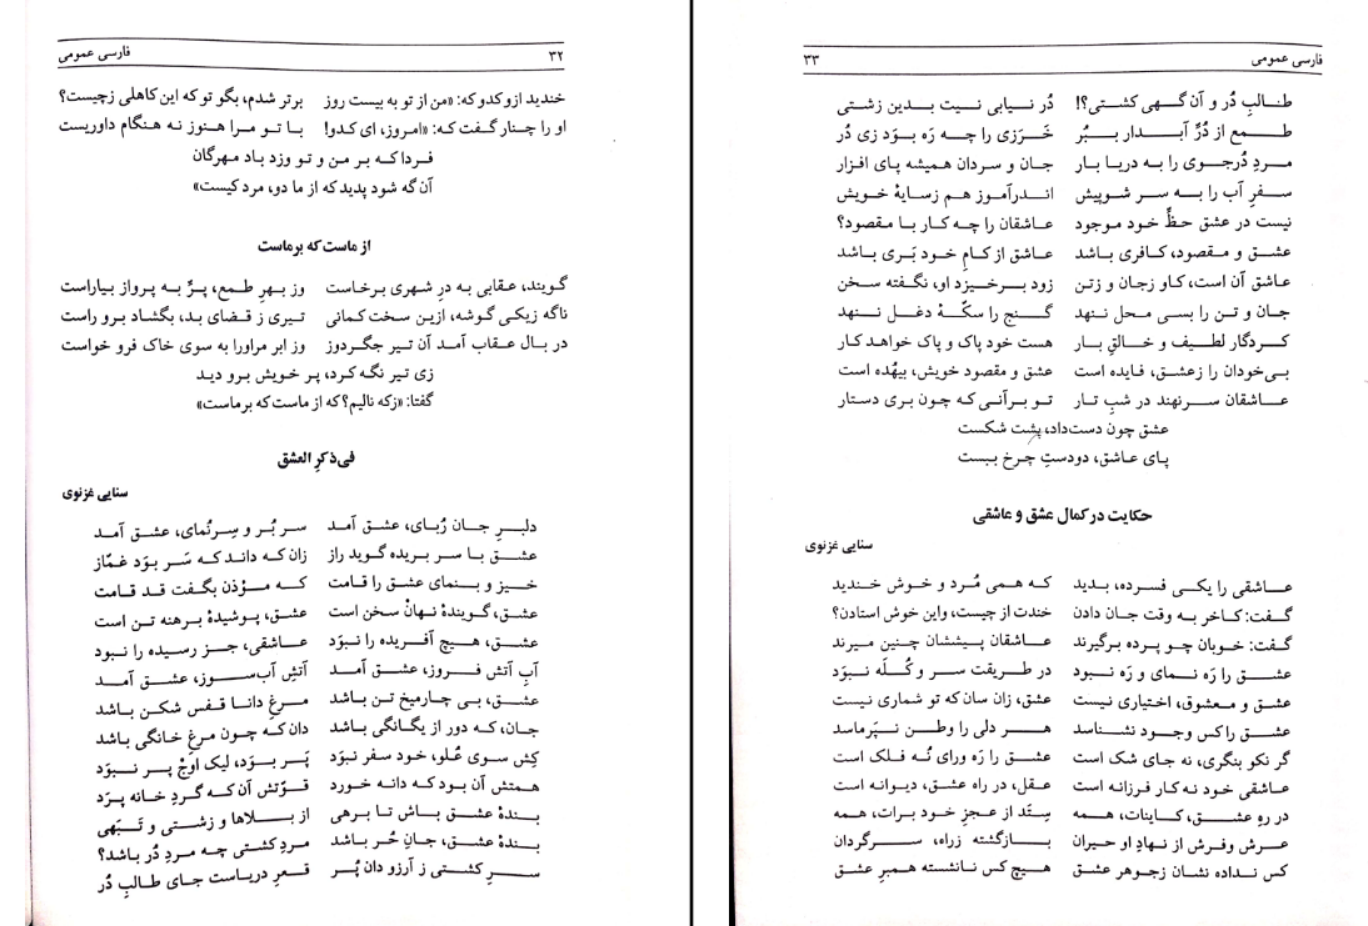 ۳۲ فارسی عمومی
خندید ازو کدو که: «من از تو به بیست روز برتر شدم، بگو تو که این کاهلی زچیست؟
او را چنار گفت که: «امروز، ای کدو! با تو مرا هنوز نه هنگام داوریست
فردا که بر من و تو وزد باد مهرگان
آن گه شود پدید که از ما دو، مرد کیست»
از ماست که برماست
گویند، عقابی به درِ شهری برخاست وز بهرِ طمع، پرّ به پرواز بیاراست
ناگه زیکی گوشه، ازین سخت کمانی تیری ز قضای بد، بگشاد برو راست
در بال عقاب آمد آن تیر جگردوز وز ابر مراورا به سوی خاک فرو خواست
زی تیر نگه کرد، پر خویش برو دید
گفتا: «زکه نالیم؟ که از ماست که برماست»
فی‌ذکرِ العشق
سنایی غزنوی
دلبرِ جان رُبای، عشق آمد سر بُر و سِرنُمای، عشق آمد
عشق با سر بریده گوید راز زان که داند که سَر بوَد غمّاز
خیز و بنمای عشق را قامت که مؤذن بگفت قد قامت
عشق، گویندهٔ نهانْ سخن است عشق، پوشیدهٔ برهنه تن است
عشق، هیچ آفریده را نبوَد عاشقی، جز رسیده را نبود
آبِ آتش فروز، عشق آمد آتشِ آب‌سوز، عشق آمد
عشق، بی چارمیخ تن باشد مرغِ دانا قفس شکن باشد
جان، که دور از یگانگی باشد دان که چون مرغِ خانگی باشد
کِش سوی عُلو، خود سفر نبوَد پَر بوَد، لیک اوجْ پر نبوَد
همتش آن بود که دانه خورد قوّتش آن که گردِ خانه پرَد
بندهٔ عشق باش تا برهی از بلاها و زشتی و تَبَهی
بندهٔ عشق، جانِ حُر باشد مردِ کشتی چه مردِ دُر باشد؟
سرِ کشتی ز آرزو دان پُر قعرِ دریاست جای طالبِ دُر
فارسی عمومی ۳۳
طالبِ دُر و آن گهی کشتی؟! دُر نیابی نیت بدین زشتی
طمع از دُرِّ آبدار ببُر خَرَزی را چه رَه بوَد زی دُر
مردِ دُرجوی را به دریا بار جان و سردان همیشه پای افزار
سفرِ آب را به سر شوپیش اندرآموز هم زسایهٔ خویش
نیست در عشق حظِّ خود موجود عاشقان را چه کار با مقصود؟
عشق و مقصود، کافری باشد عاشق از کامِ خود بَری باشد
عاشق آن است، کاو زجان و زتن زود برخیزد او، نگفته سخن
جان و تن را بسی محل ننهد گنج را سکّهٔ دغل ننهد
کردگار لطیف و خالقِ بار هست خود پاک و پاک خواهد کار
بی‌خودان را زعشق، فایده است عشق و مقصود خویش، بیهُده است
عاشقان سرنهند در شبِ تار تو برآنی که چون بری دستار
عشق چون دست‌داد، پشت شکست
پای عاشق، دودستِ چرخ ببست
حکایت در کمال عشق و عاشقی
سنایی غزنوی
عاشقی را یکی فسرده، بدید که همی مُرد و خوش خندید
گفت: کاخر به وقت جان دادن خندت از چیست، واین خوش استادن؟
گفت: خوبان چو پرده برگیرند عاشقان پیششان چنین میرند
عشق را رَه نمای و رَه نبود در طریقت سر و کُلَه نبوَد
عشق و معشوق، اختیاری نیست عشق، زان سان که تو شماری نیست
عشق را کس وجود نشناسد هر دلی را وطن نپَرماسد
گر نکو بنگری، نه جای شک است عشق را رَه ورای نُه فلک است
عاشقی خود نه کار فرزانه است عقل، در راه عشق، دیوانه است
در رهِ عشق، کاینات، همه سِتَد از عجزِ خود برات، همه
عرش وفرش از نهادِ او حیران بازگشته زراه، سرگردان
کس نداده نشان زجوهر عشق هیچ کس نانشسته همبرِ عشق